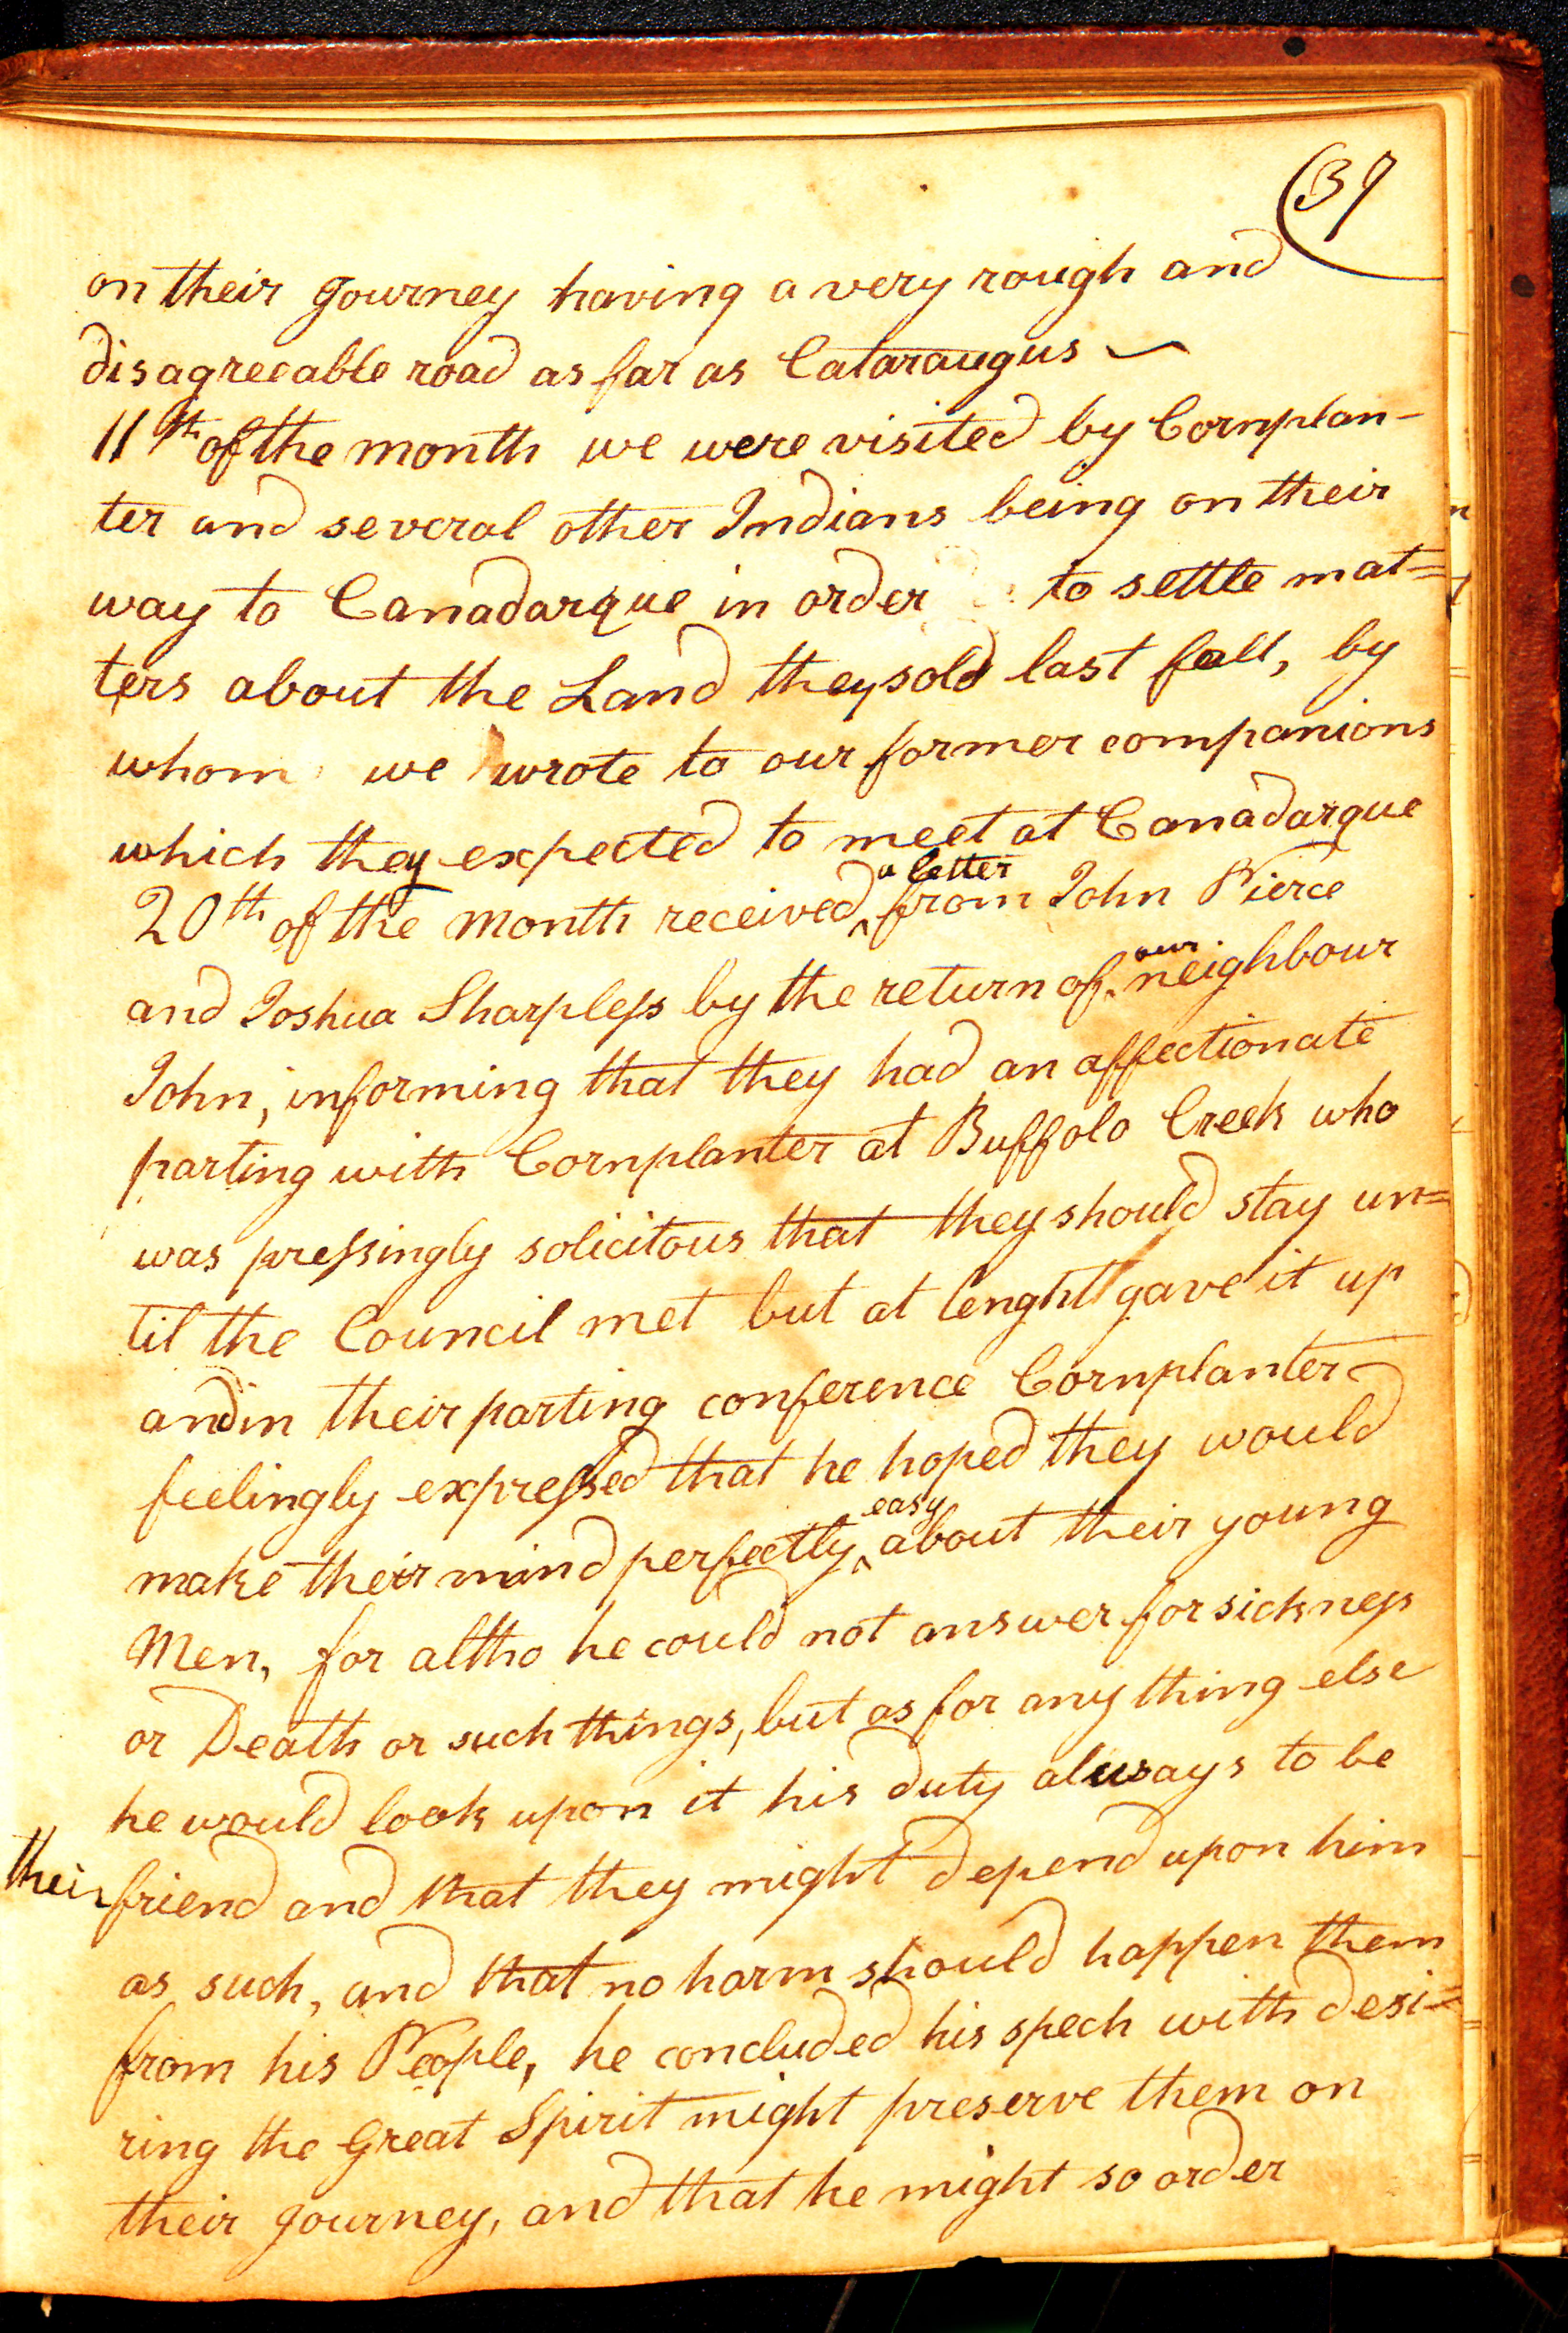 37
on their Journey having a very rough and
disagreeable road as far as Cataraugus
11th of the month we were visited by Cornplan-
ter and several other Indians being on their
way to Canadarque in order to settle mat=
ters about the Land they sold last fall, by
whom we wrote to our former companions
which they expected to meet at Canadarque
20th of the month received ^a letter from John Pierce
and Joshua Sharpless by the return of our neighbour
John, informing that they had an affectionate
parting with Cornplanter at Buffolo Creek who
was pressingly solicitous that they should stay un=
til the Council met but at lenght gave it up
and in their parting conference Cornplanter
feelingly expressed that he hoped they would
make their mind perfectly ^easy about their young
Men, for altho he could not answer for sickness
or Death or such things, but as for any thing else
he would look upon it his duty always to be
their friend and that they might depend upon him
as such, and that no harm should happen them
from his People, he concluded his spech with desi=
ring the Great Spirit might preserve them on
their Journey, and that he might so order